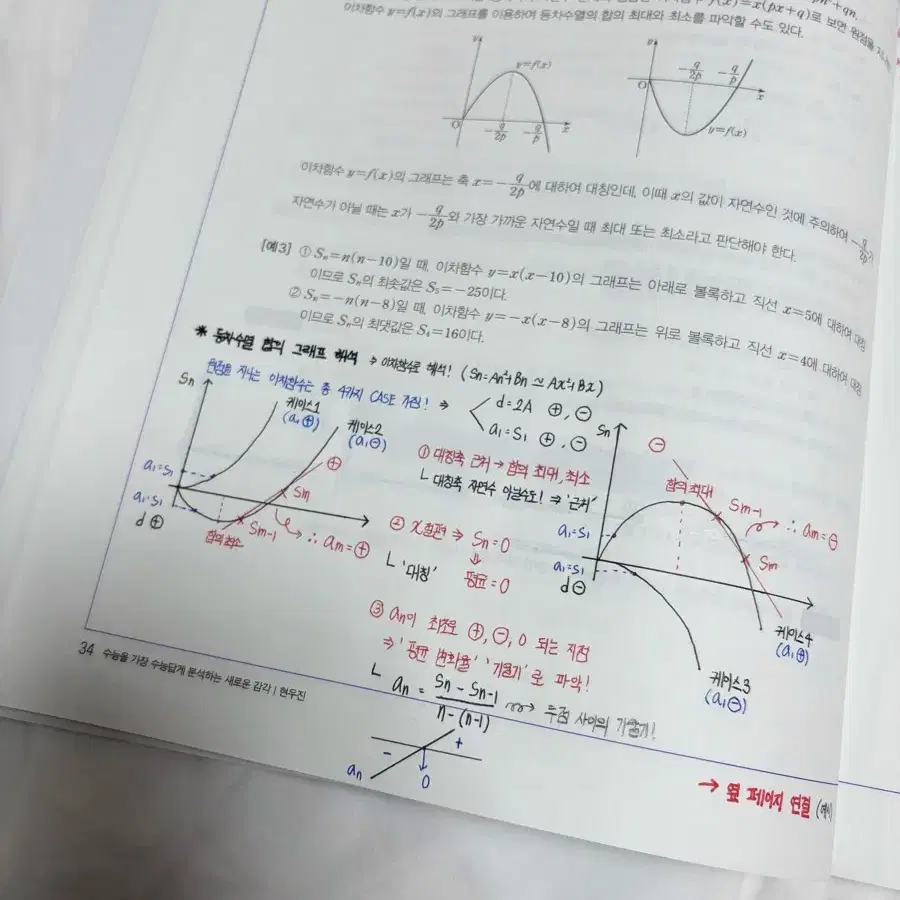 f(x)=x(px+q)로 보면 원점을
이차함수 y=f(x)의 그래프를 이용하여 등차수열의 합의 최대와 최소를 파악할 수도 있다.
y
y=f(x)
O
-q/2p
-q/p
x
y
-q/2p
-q/p
O
x
y=f(x)
이차함수 y=f(x)의 그래프는 축 x=-q/2p에 대하여 대칭인데, 이때 x의 값이 자연수인 것에 주의하여 -q/2p가
자연수가 아닐 때는 x가 -q/2p와 가장 가까운 자연수일 때 최대 또는 최소라고 판단해야 한다.
[예3] ① Sn=n(n-10)일 때, 이차함수 y=x(x-10)의 그래프는 아래로 볼록하고 직선 x=5에 대하여 대칭
이므로 Sn의 최솟값은 S₅=-25이다.
② Sn=-n(n-8)일 때, 이차함수 y=-x(x-8)의 그래프는 위로 볼록하고 직선 x=4에 대하여 대칭
이므로 Sn의 최댓값은 S₄=16이다.
* 등차수열 합의 그래프 해석 → 이차함수로 해석! (Sn=An²+Bn ≃ Ax²+Bx)
원점을 지나는 이차함수는 총 4가지 CASE 가짐! ⇒
d=2A ⊕, ⊖
a₁=S₁ ⊕, ⊖
Sn
케이스1
(a₁⊕)
케이스2
(a₁⊖)
⊕
a₁=S₁
a₁=S₁
d⊕
Sm
Sm-1
합의 최소
∴ am=⊕
① 대칭축 근처 → 합의 최대, 최소
ㄴ 대칭축 자연수 아닐수도! ⇒ '근처'
② x절편 ⇒ Sn=0
ㄴ '대칭'
평균=0
Sn
⊖
합의 최대
Sm-1
∴ am=⊖
Sm
a₁=S₁
a₁=S₁
d⊖
케이스4
(a₁⊕)
케이스3
(a₁⊖)
③ an이 최초로 ⊕, ⊖, 0 되는 지점
⇒ '평균 변화율' '기울기'로 파악!
ㄴ an = Sn-Sn-1 / n-(n-1) → 두점 사이의 기울기!
- +
an
0
34 수능을 가장 수능답게 분석하는 새로운 감각 | 현우진
→ 옆 페이지 연결 (예시)